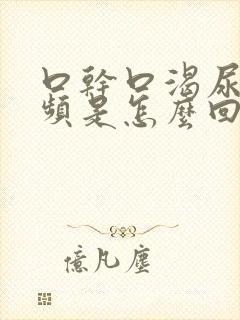 口幹口渴尿
頻是怎麼回
憶凡塵